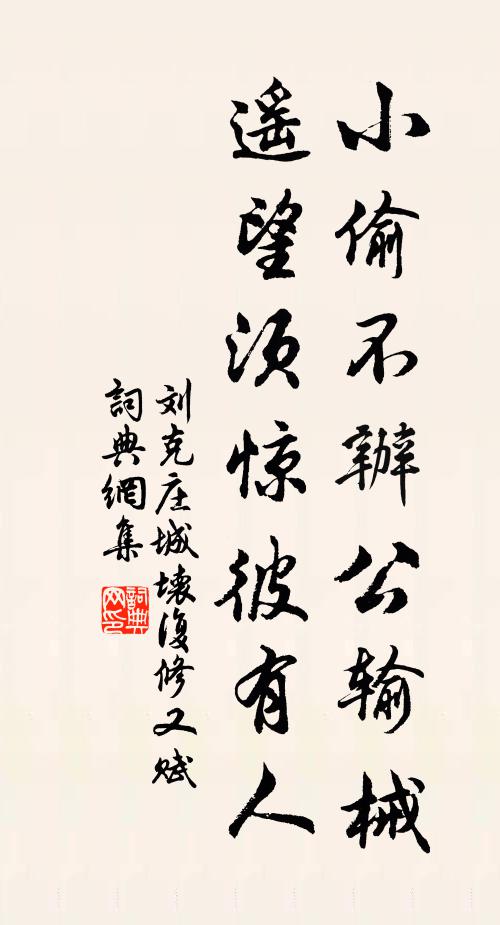 小偷不辦公输械
遥望须惊彼有人
刘克庄城壊復修又赋
詞典網集
詞典网印